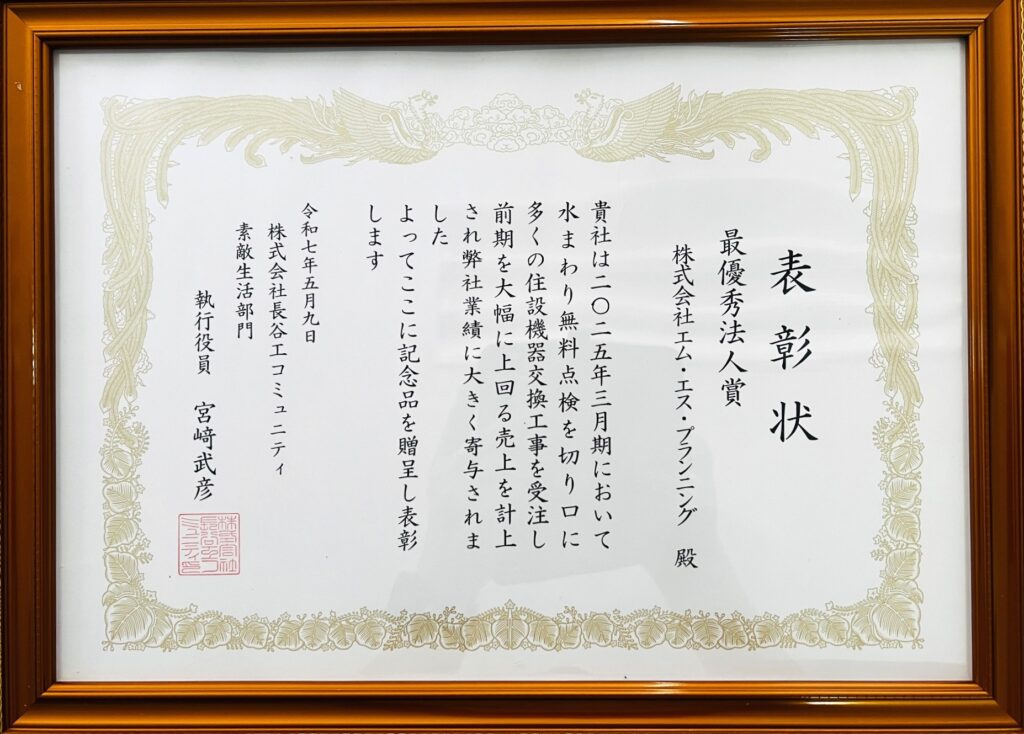 表彰状
最優秀法人賞
株式会社エム・エス・プランニング 殿
貴社は二〇二五年三月期において
水まわり無料点検を切り口に
多くの住設機器交換工事を受注し
前期を大幅に上回る売上を計上
され弊社業績に大きく寄与されま
した
よってここに記念品を贈呈し表彰
します
令和七年五月九日
株式会社長谷工コミュニティ
素敵生活部門
執行役員 宮﨑武彦
株式会社
長谷工コ
ミュニティ印